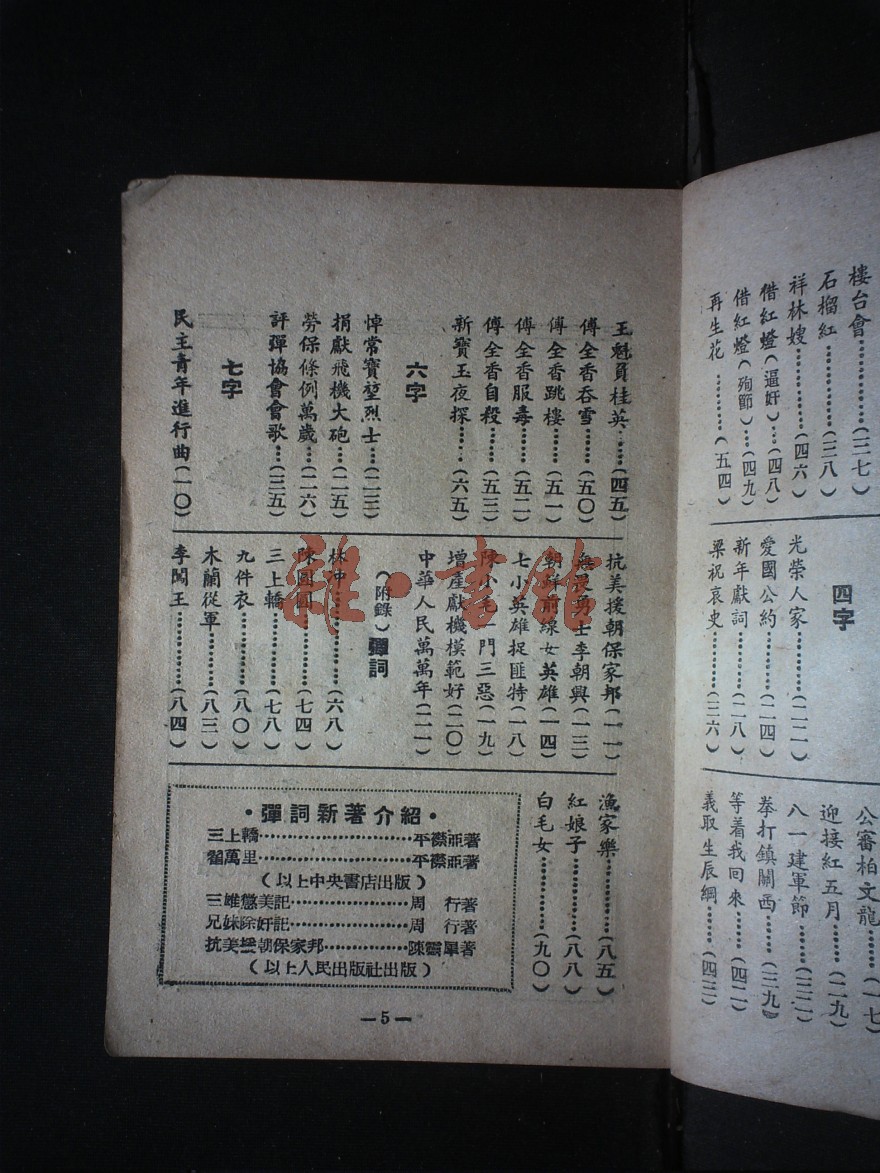 樓台會……(三七)
石榴紅……(三八)
祥林嫂……(四六)
借紅燈(逼奸)…(四八)
借紅燈(殉節)…(四九)
再生花………(五四)
四字
光榮人家………(二二)
愛國公約………(二四)
新年獻詞………(二八)
梁祝哀史………(三六)
公審柏文龍……(一七)
迎接紅五月……(二九)
八一建軍節……(三二)
拳打鎮關西……(三九)
等着我回來……(四二)
義取生辰綱……(四三)
王魁負桂英……(四五)
傅全香吞雪……(五〇)
傅全香跳樓……(五一)
傅全香服毒……(五二)
傅全香自殺……(五三)
新寶玉夜探……(六五)
六字
悼常寶堃烈士…(二三)
捐獻飛機大砲…(二五)
勞保條例萬歲…(二六)
評彈協會會歌…(三五)
七字
民主青年進行曲(一〇)
抗美援朝保家邦(一一)
無畏勇士李朝興(一三)
朝鮮前線女英雄(一四)
七小英雄捉匪特(一八)
陳小毛一門三惡(一九)
增產獻機模範好(二〇)
中華人民萬萬年(二一)
(附錄)彈詞
林冲……………(六八)
陳圓圓…………(七四)
三上轎…………(七八)
九件衣…………(八〇)
木蘭從軍………(八三)
李闖王…………(八四)
漁家樂…………(八五)
紅娘子…………(八八)
白毛女…………(九〇)
•彈詞新著介紹•
三上轎……………………平襟亞著
翟萬里……………………平襟亞著
(以上中央書店出版)
三雄懲美記………………周 行著
兄妹除奸記………………周 行著
抗美援朝保家邦…………陳靈犀著
(以上人民出版社出版)
—5—
雜·書館